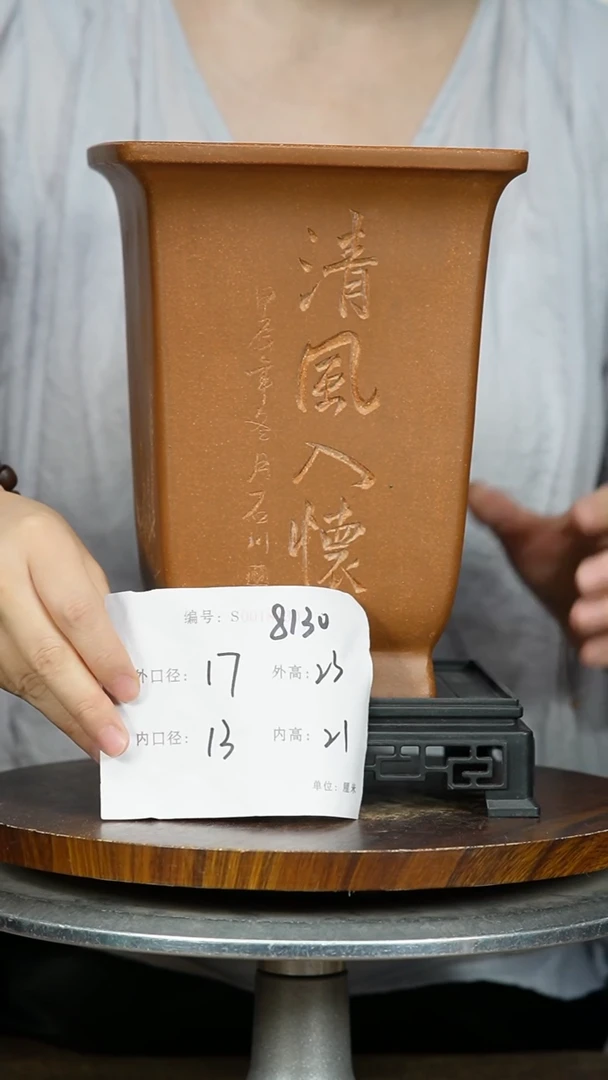 清風入懷
石川
编号: S 8130
外口径: 17 外高: 23
内口径: 13 内高: 21
单位: 厘米